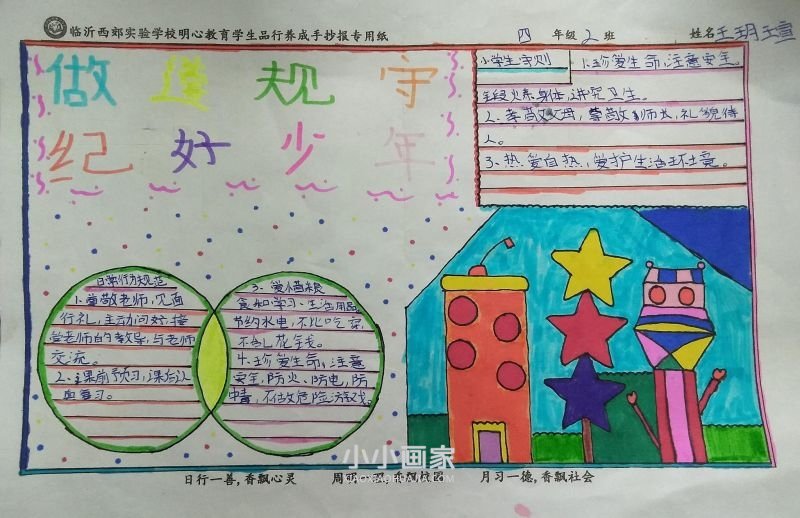 临沂西郊实验学校明心教育学生品行养成手抄报专用纸 四 年级 2 班 姓名王玥王宣
做遵规守
纪好少年
小学生守则
1、珍爱生命,注意安全。
锻炼身体,讲究卫生。
2、孝敬父母,尊敬师长,礼貌待
人。
3、热爱自然,爱护生活环境。
日常行为规范
1、尊敬老师,见面
行礼,主动问好,接
受老师的教导,与老师
交流。
2、课前预习,课后认
真复习。
3、爱惜粮
食和学习、生活用品
节约水电,不比吃穿,
不乱花钱。
4、珍爱生命,注意
安全,防火、防电,防
中毒,不做危险游戏。
小小画家
XIAOXIAOHUAJIA.COM
日行一善,香飘心灵
月习一德,香飘社会